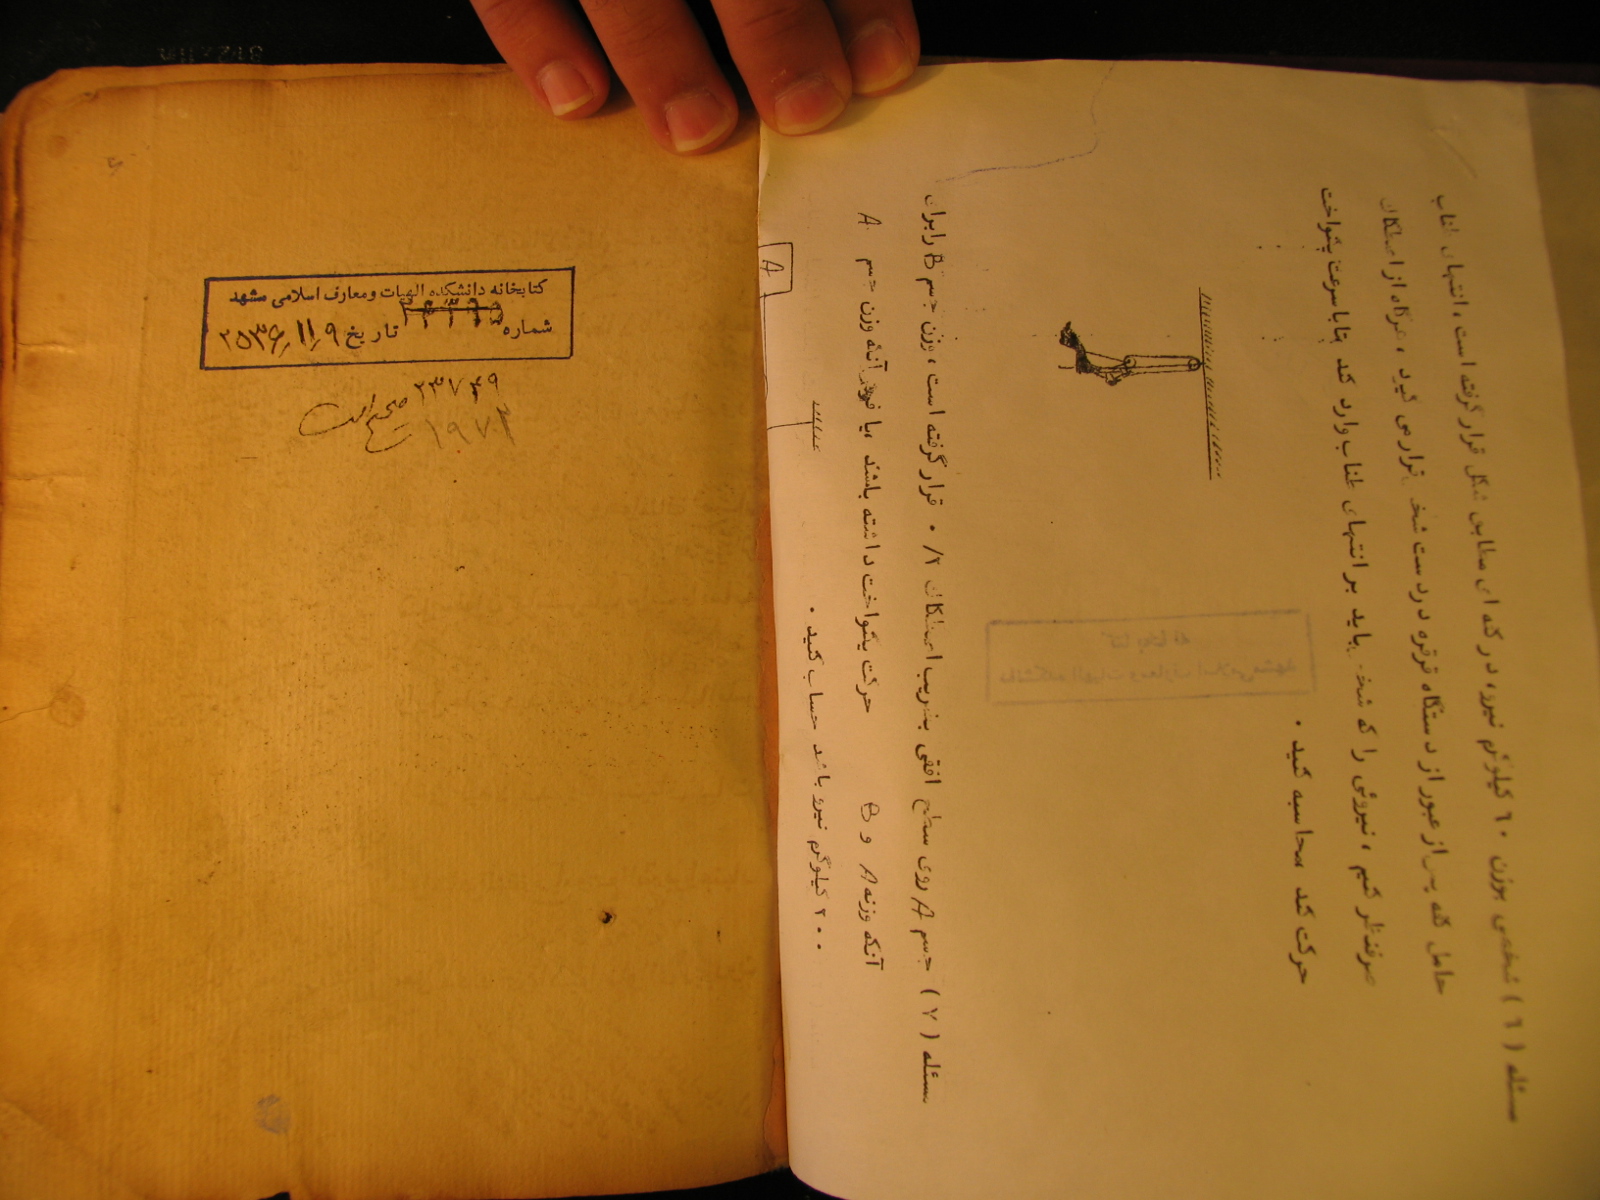 کتابخانه دانشکده الهیات و معارف اسلامی مشهد
شماره تاریخ ۲۵۳۶٫۱۱٫۹
۲۳۷۴۹
۱۹۷۲
مسئله ( ٦ ) شخصی بوزن ٦٠ کیلوگرم نیرو، در که ای مطابق شکل قرار گرفته است، انتهای طناب
حامل که پس از عبور از دستگاه قرقره در دست شخص قرار می گیرد، هرگاه از اصطکاک
صرفنظر کنیم، نیروئی را که شخص باید بر انتهای طناب وارد کند تا با سرعت یکنواخت
حرکت کند محاسبه کنید.
کتابخانه
دانشکده الهیات و معارف اسلامی مشهد
مسئله ( ٧ ) جسم A روی سطح افقی بضریب اصطکاک ٠/٢ قرار گرفته است، وزن جسم B را برای
آنکه وزنه A و B حرکت یکنواخت داشته باشند، با فرض آنکه وزن جسم A
٢٠٠ کیلوگرم نیرو باشد حساب کنید.
A